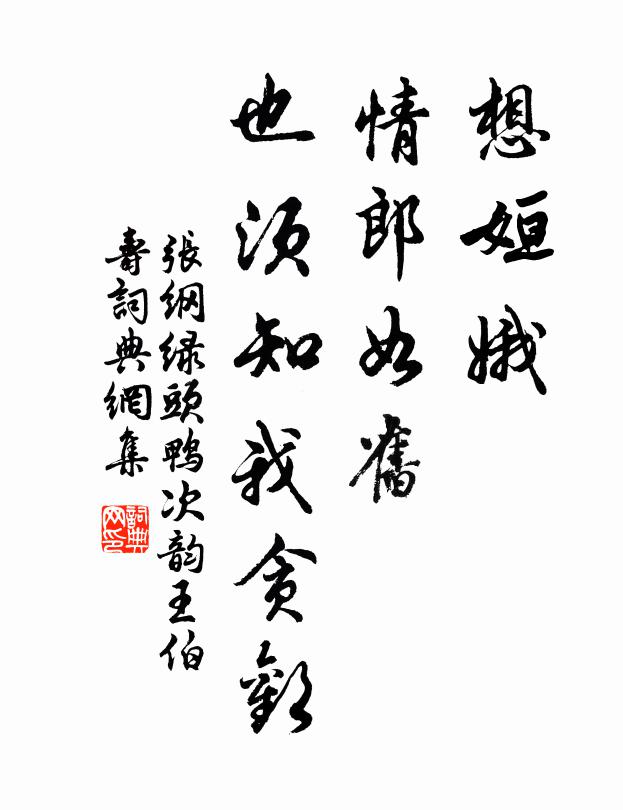 想姮娥
情郎如舊
也須知我貪歡
張綱緑頭鴨次韵王伯
壽詞典網集
詞典
网印